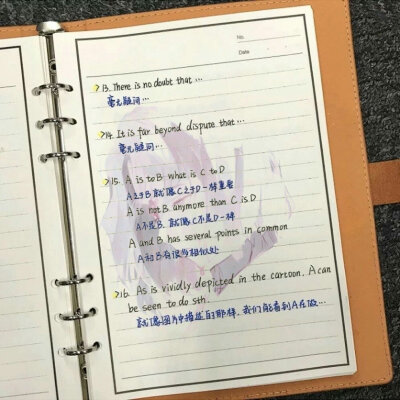 No.
Date
>13. There is no doubt that ...
毫无疑问...
>14. It is far beyond dispute that...
毫无疑问...
>15. A is to B what is C to D
A之于B就像C之于D一样重要
A is not B anymore than C is D
A不是B,就像C不是D一样
A and B has several points in common
A和B有很多相似处
>16. As is vividly depicted in the cartoon, A can
be seen to do sth.
就像图片中描述的那样,我们能看到A在做...